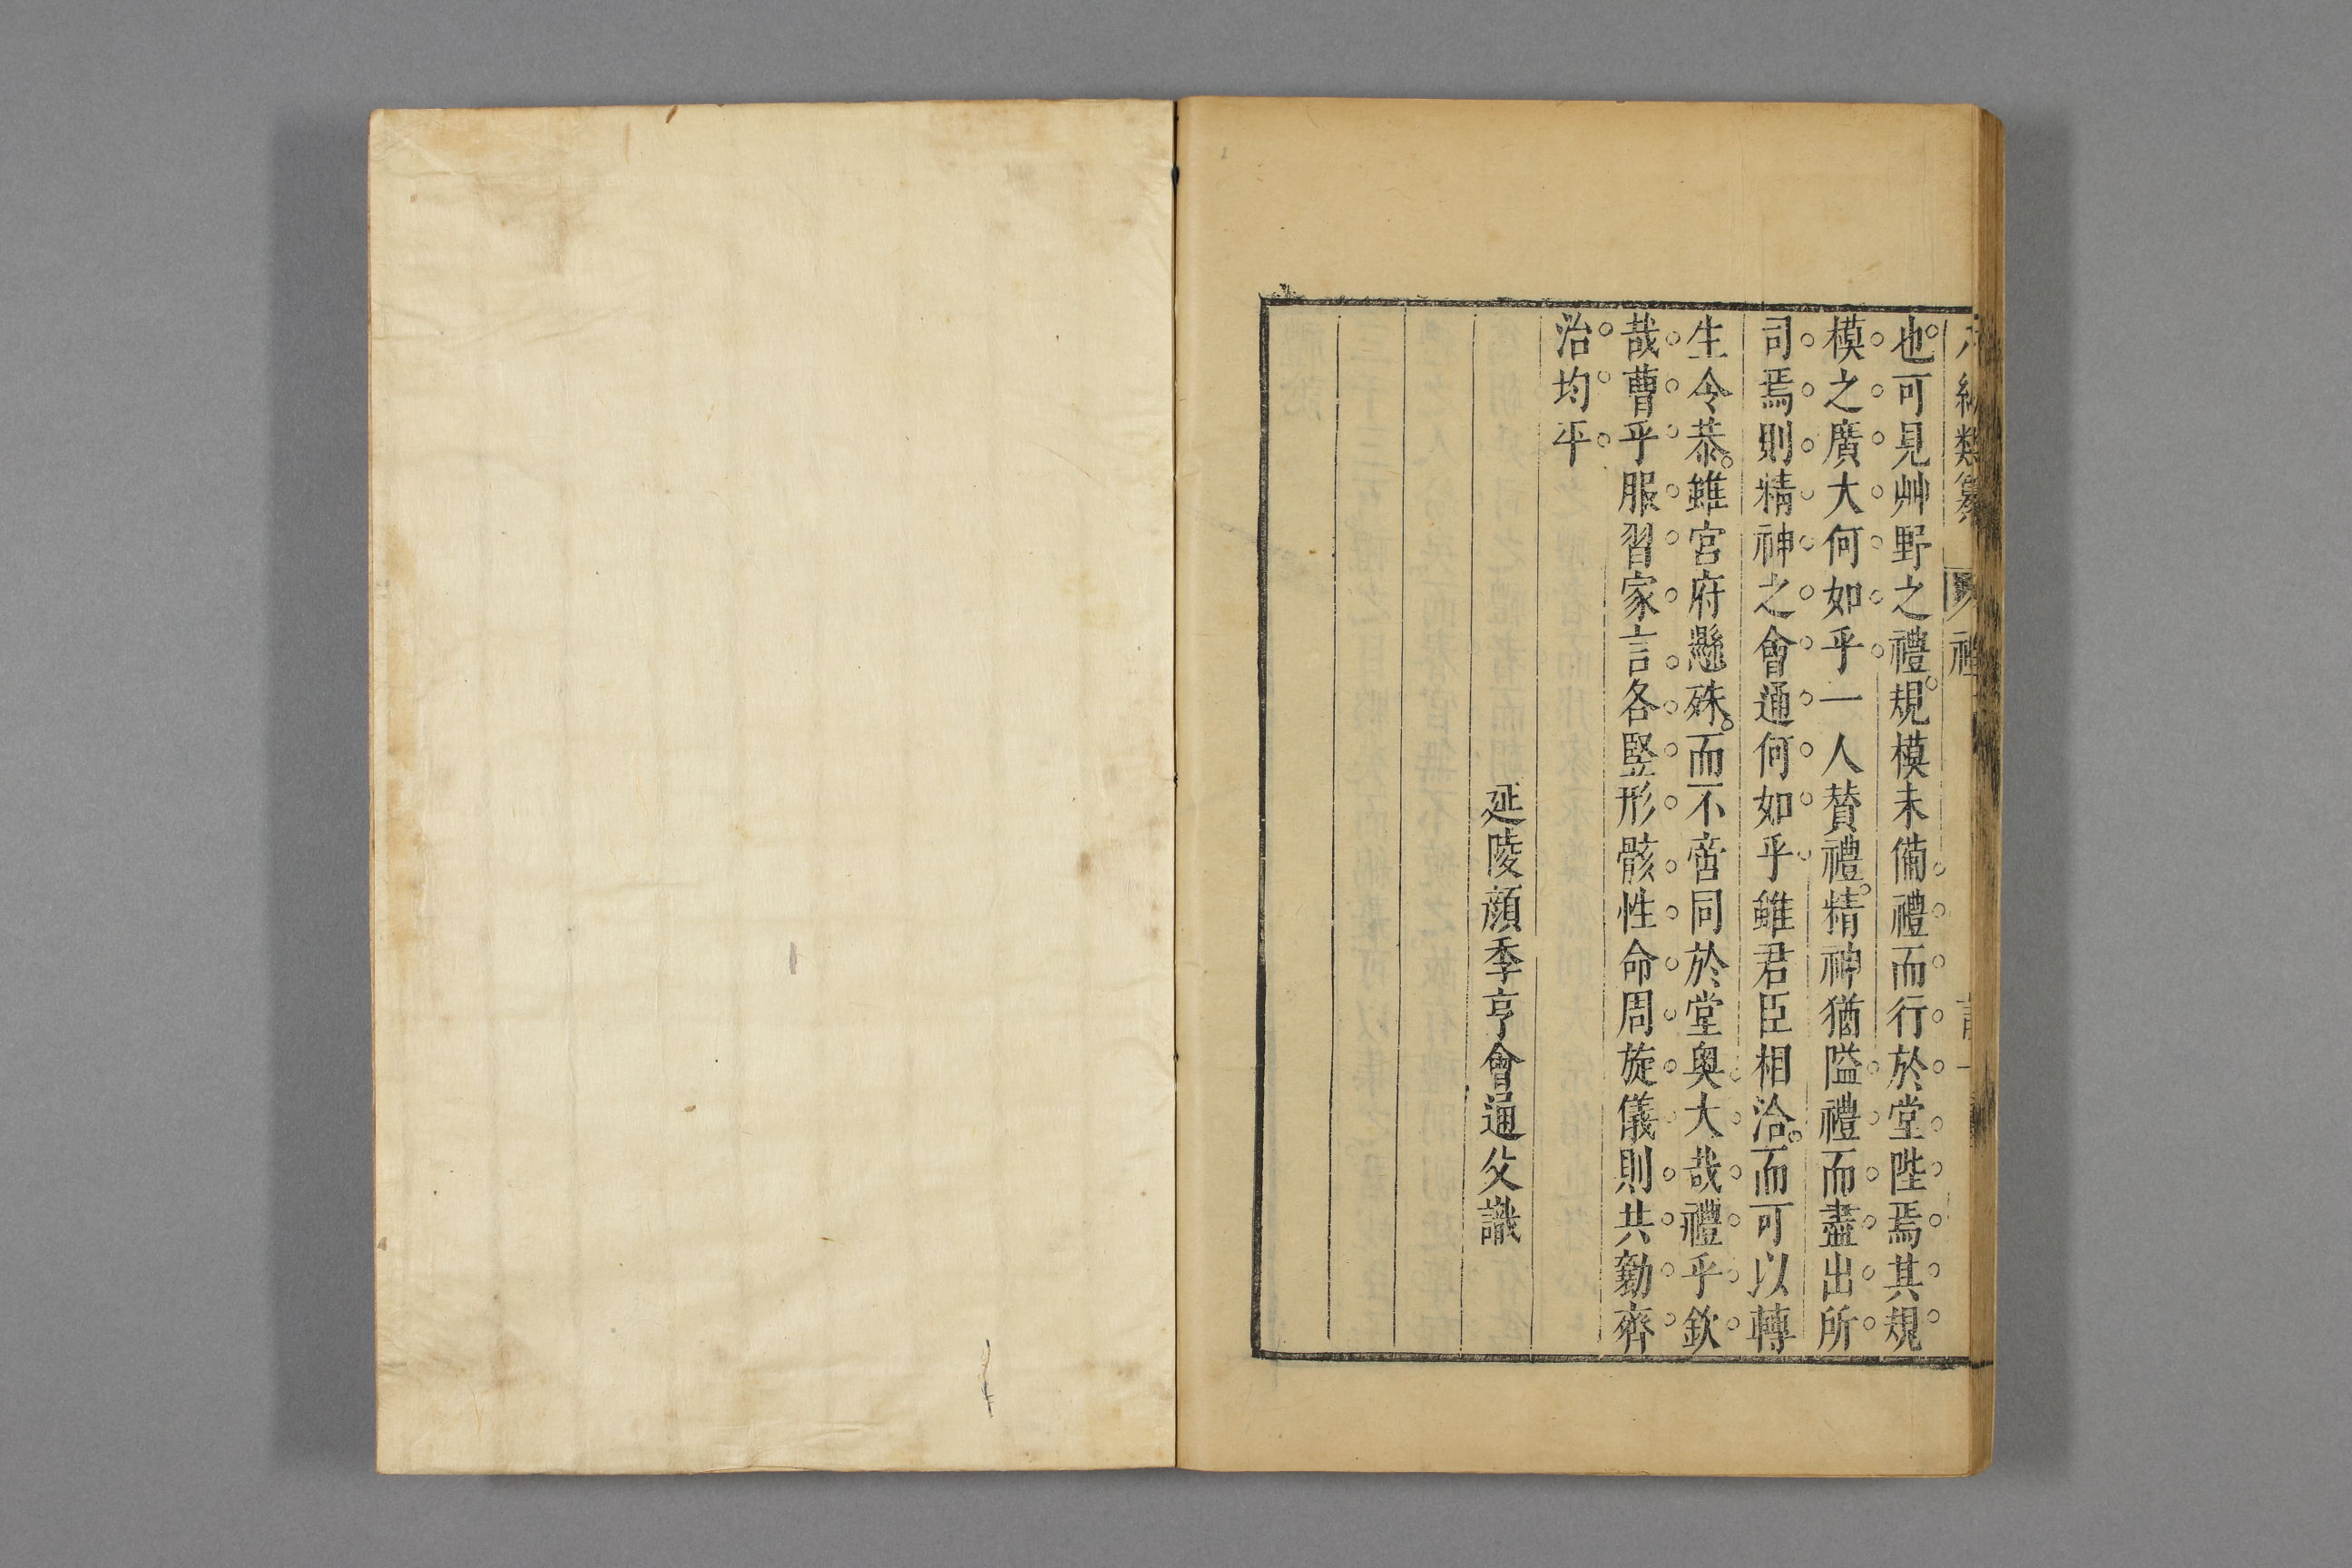 經類纂 禮
也可見艸野之禮規模未備禮而行於堂陛焉其規
模之廣大何如乎一人賛禮精神猶隘禮而盡出所
司焉則精神之會通何如乎雖君臣相洽而可以轉
生令恭雖宮府懸殊而不啻同於堂奧大哉禮乎欽
哉曹乎服習家言各竪形骸性命周旋儀則共勷齊
治均平
延陵顔季亨會通父識